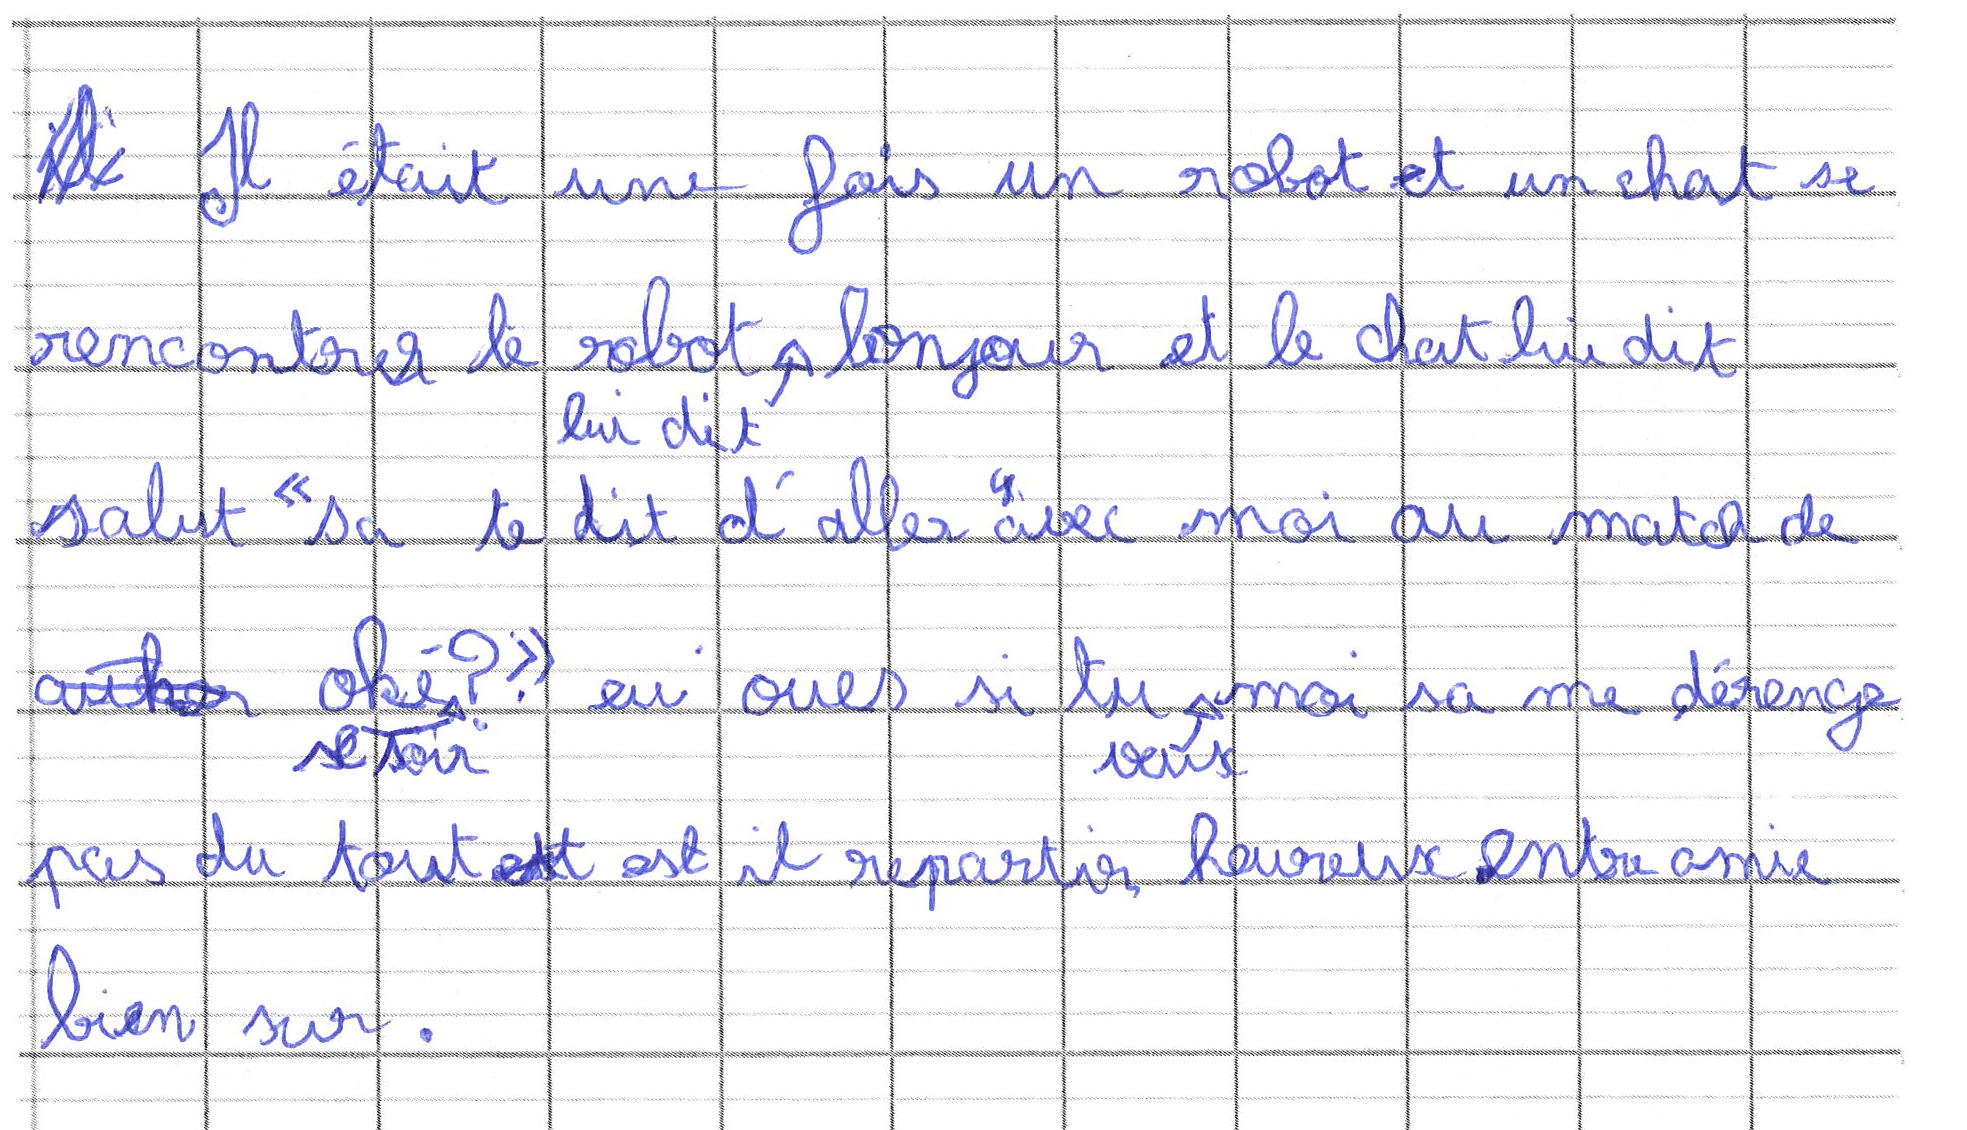 Il était une fois un robot et un chat se
rencontrer le robot bonjour et le chat lui dit
lui dit
salut « sa te dit d'aller " avec moi au match de
oké ? » eu oues si tu moi sa me dérenge
se soir veux
pas du tout est il repartir, heureux entre amie
bien sur.